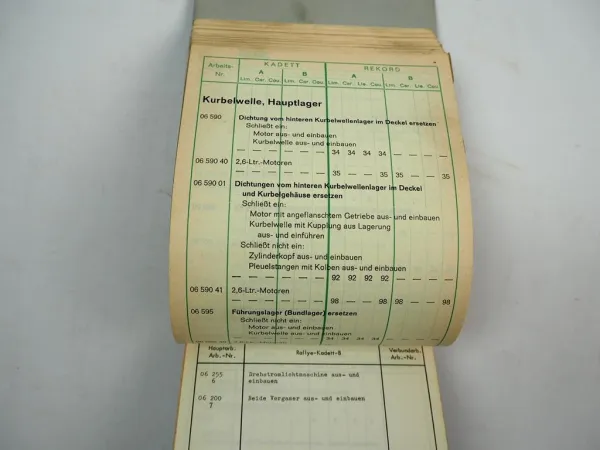 Arbeits- KADETT REKORD
Nr. A B A B
Lim. Car. Cou. Lim. Car. Cou. Lim. Car. Lie. Cou. Lim. Car. Lie. Cou.
Kurbelwelle, Hauptlager
06 590 Dichtung vom hinteren Kurbelwellenlager im Deckel ersetzen
Schließt ein:
Motor aus- und einbauen
Kurbelwelle aus- und einbauen
— — — — — — 34 34 34 34 — — — —
06 590 40 2,6-Ltr.-Motoren
— — — — — — 35 — — 35 35 — — 35
06 590 01 Dichtungen vom hinteren Kurbelwellenlager im Deckel
und Kurbelgehäuse ersetzen
Schließt ein:
Motor mit angeflanschtem Getriebe aus- und einbauen
Kurbelwelle mit Kupplung aus Lagerung
aus- und einführen
Schließt nicht ein:
Zylinderkopf aus- und einbauen
Pleuelstangen mit Kolben aus- und einbauen
— — — — — — 92 92 92 92 — — — —
06 590 41 2,6-Ltr.-Motoren
— — — — — — 98 — — 98 98 — — 98
06 595 Führungslager (Bundlager) ersetzen
Schließt nicht ein:
Motor aus- und einbauen
Kurbelwelle aus- und einbauen
— — — — — — 34 34 34 34 — — — —
Hauptarb. Rallye-Kadett-B Verbundarb.
Arb.-Nr. Arb.-Nr.
06 255 Drehstromlichtmaschine aus- und
6 einbauen
06 200 Beide Vergaser aus- und einbauen
7